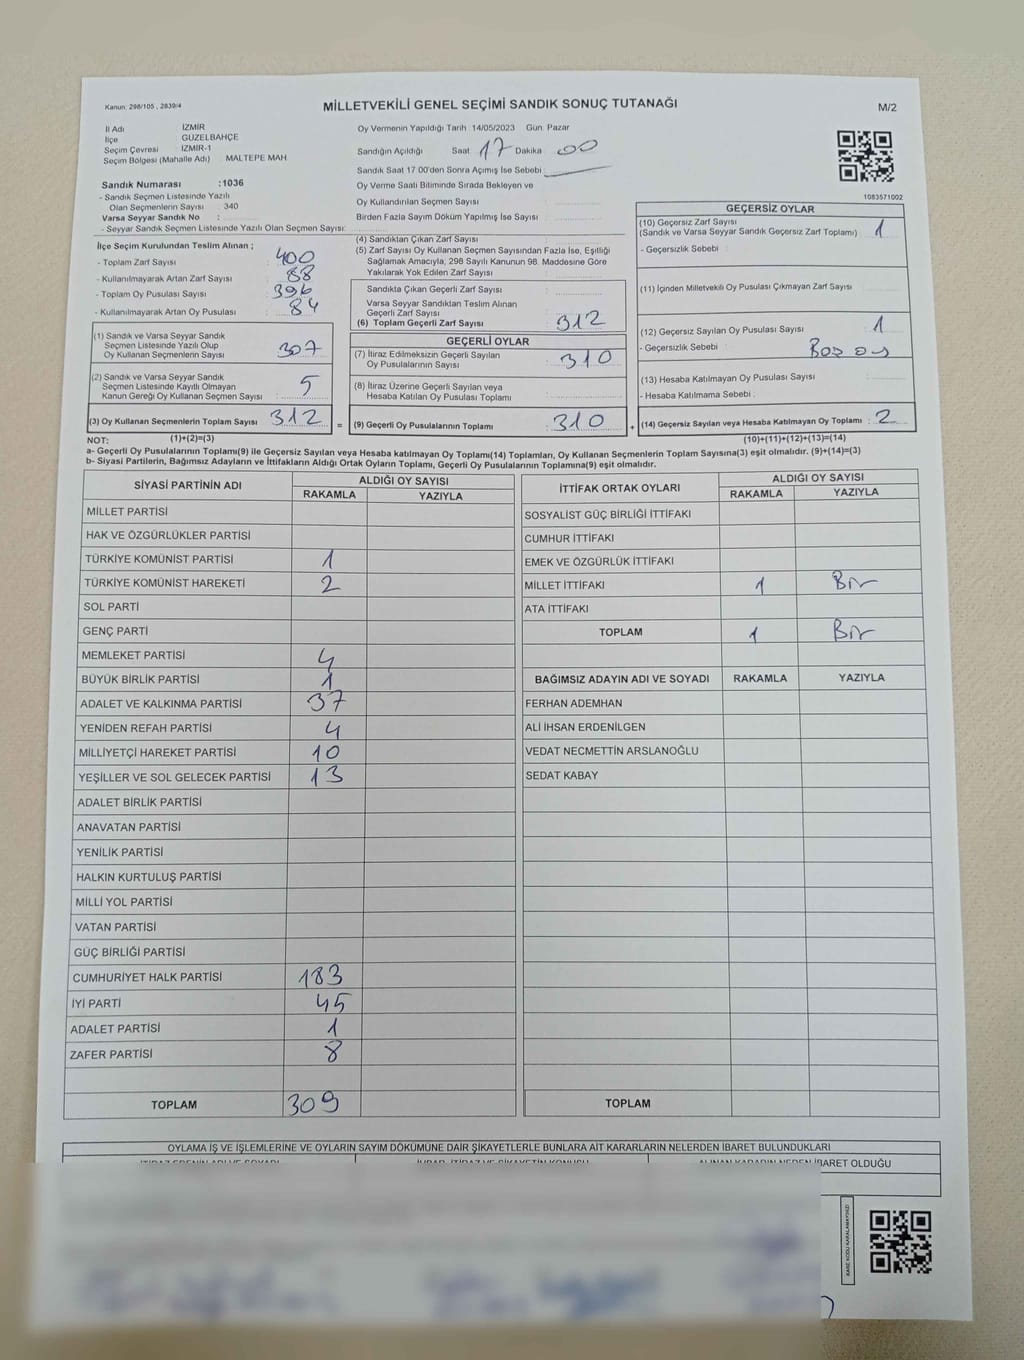 Kanun: 298/105 , 2839/4
MİLLETVEKİLİ GENEL SEÇİMİ SANDIK SONUÇ TUTANAĞI
M/2
İl Adı İZMİR
İlçe GÜZELBAHÇE
Seçim Çevresi İZMİR-1
Seçim Bölgesi (Mahalle Adı) MALTEPE MAH
Sandık Numarası :1036
- Sandık Seçmen Listesinde Yazılı
Olan Seçmenlerin Sayısı : 340
Varsa Seyyar Sandık No :
- Seyyar Sandık Seçmen Listesinde Yazılı Olan Seçmen Sayısı:
Oy Vermenin Yapıldığı Tarih 14/05/2023 Gün Pazar
Sandığın Açıldığı Saat 17 Dakika 00
Sandık Saat 17 00'den Sonra Açımış İse Sebebi
Oy Verme Saati Bitiminde Sırada Bekleyen ve
Oy Kullandırılan Seçmen Sayısı :
Birden Fazla Sayım Döküm Yapılmış İse Sayısı :
1083571002
İlçe Seçim Kurulundan Teslim Alınan ;
- Toplam Zarf Sayısı : 400
- Kullanılmayarak Artan Zarf Sayısı : 88
- Toplam Oy Pusulası Sayısı : 396
- Kullanılmayarak Artan Oy Pusulası : 84
(1) Sandık ve Varsa Seyyar Sandık
Seçmen Listesinde Yazılı Olup
Oy Kullanan Seçmenlerin Sayısı : 307
(2) Sandık ve Varsa Seyyar Sandık
Seçmen Listesinde Kayıtlı Olmayan
Kanun Gereği Oy Kullanan Seçmen Sayısı : 5
(3) Oy Kullanan Seçmenlerin Toplam Sayısı : 312
(4) Sandıktan Çıkan Zarf Sayısı :
(5) Zarf Sayısı Oy Kullanan Seçmen Sayısından Fazla İse, Eşitliği
Sağlamak Amacıyla, 298 Sayılı Kanunun 98. Maddesine Göre
Yakılarak Yok Edilen Zarf Sayısı :
Sandıkta Çıkan Geçerli Zarf Sayısı :
Varsa Seyyar Sandıktan Teslim Alınan
Geçerli Zarf Sayısı :
(6) Toplam Geçerli Zarf Sayısı : 312
GEÇERLİ OYLAR
(7) İtiraz Edilmeksizin Geçerli Sayılan
Oy Pusulalarının Sayısı : 310
(8) İtiraz Üzerine Geçerli Sayılan veya
Hesaba Katılan Oy Pusulası Toplamı :
= (9) Geçerli Oy Pusulalarının Toplamı : 310 +
GEÇERSİZ OYLAR
(10) Geçersiz Zarf Sayısı : 1
(Sandık ve Varsa Seyyar Sandık Geçersiz Zarf Toplamı)
- Geçersizlik Sebebi :
(11) İçinden Milletvekili Oy Pusulası Çıkmayan Zarf Sayısı :
(12) Geçersiz Sayılan Oy Pusulası Sayısı : 1
- Geçersizlik Sebebi : Boş oy
(13) Hesaba Katılmayan Oy Pusulası Sayısı :
- Hesaba Katılmama Sebebi :
(14) Geçersiz Sayılan veya Hesaba Katılmayan Oy Toplamı : 2
NOT: (1)+(2)=(3) (10)+(11)+(12)+(13)=(14)
a- Geçerli Oy Pusulalarının Toplamı(9) ile Geçersiz Sayılan veya Hesaba katılmayan Oy Toplamı(14) Toplamları, Oy Kullanan Seçmenlerin Toplam Sayısına(3) eşit olmalıdır. (9)+(14)=(3)
b- Siyasi Partilerin, Bağımsız Adayların ve İttifakların Aldığı Ortak Oyların Toplamı, Geçerli Oy Pusulalarının Toplamına(9) eşit olmalıdır.
SİYASİ PARTİNİN ADI ALDIĞI OY SAYISI
RAKAMLA YAZIYLA
MİLLET PARTİSİ
HAK VE ÖZGÜRLÜKLER PARTİSİ
TÜRKİYE KOMÜNİST PARTİSİ 1
TÜRKİYE KOMÜNİST HAREKETİ 2
SOL PARTİ
GENÇ PARTİ
MEMLEKET PARTİSİ 4
BÜYÜK BİRLİK PARTİSİ 1
ADALET VE KALKINMA PARTİSİ 37
YENİDEN REFAH PARTİSİ 4
MİLLİYETÇİ HAREKET PARTİSİ 10
YEŞİLLER VE SOL GELECEK PARTİSİ 13
ADALET BİRLİK PARTİSİ
ANAVATAN PARTİSİ
YENİLİK PARTİSİ
HALKIN KURTULUŞ PARTİSİ
MİLLİ YOL PARTİSİ
VATAN PARTİSİ
GÜÇ BİRLİĞİ PARTİSİ
CUMHURİYET HALK PARTİSİ 183
İYİ PARTİ 45
ADALET PARTİSİ 1
ZAFER PARTİSİ 8
TOPLAM 309
İTTİFAK ORTAK OYLARI ALDIĞI OY SAYISI
RAKAMLA YAZIYLA
SOSYALİST GÜÇ BİRLİĞİ İTTİFAKI
CUMHUR İTTİFAKI
EMEK VE ÖZGÜRLÜK İTTİFAKI
MİLLET İTTİFAKI 1 Bir
ATA İTTİFAKI
TOPLAM 1 Bir
BAĞIMSIZ ADAYIN ADI VE SOYADI RAKAMLA YAZIYLA
FERHAN ADEMHAN
ALİ İHSAN ERDENİLGEN
VEDAT NECMETTİN ARSLANOĞLU
SEDAT KABAY
TOPLAM
OYLAMA İŞ VE İŞLEMLERİNE VE OYLARIN SAYIM DÖKÜMÜNE DAİR ŞİKAYETLERLE BUNLARA AİT KARARLARIN NELERDEN İBARET BULUNDUKLARI
İBARET OLDUĞU
KARE KODU KARALAMAYINIZ!